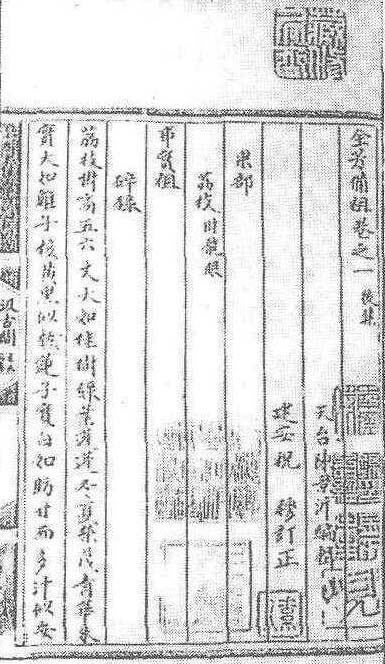 全芳備祖卷之一 後集
天台陳景沂編輯
建安祝 穆訂正
果部
荔枝附龍眼
事實祖
碎錄
荔枝樹高五六丈大如桂樹綠葉蓬蓬冬夏榮茂青華朱
實大如雞子核黃黑似熟蓮子實白如肪甘而多汁似安
汲古閣